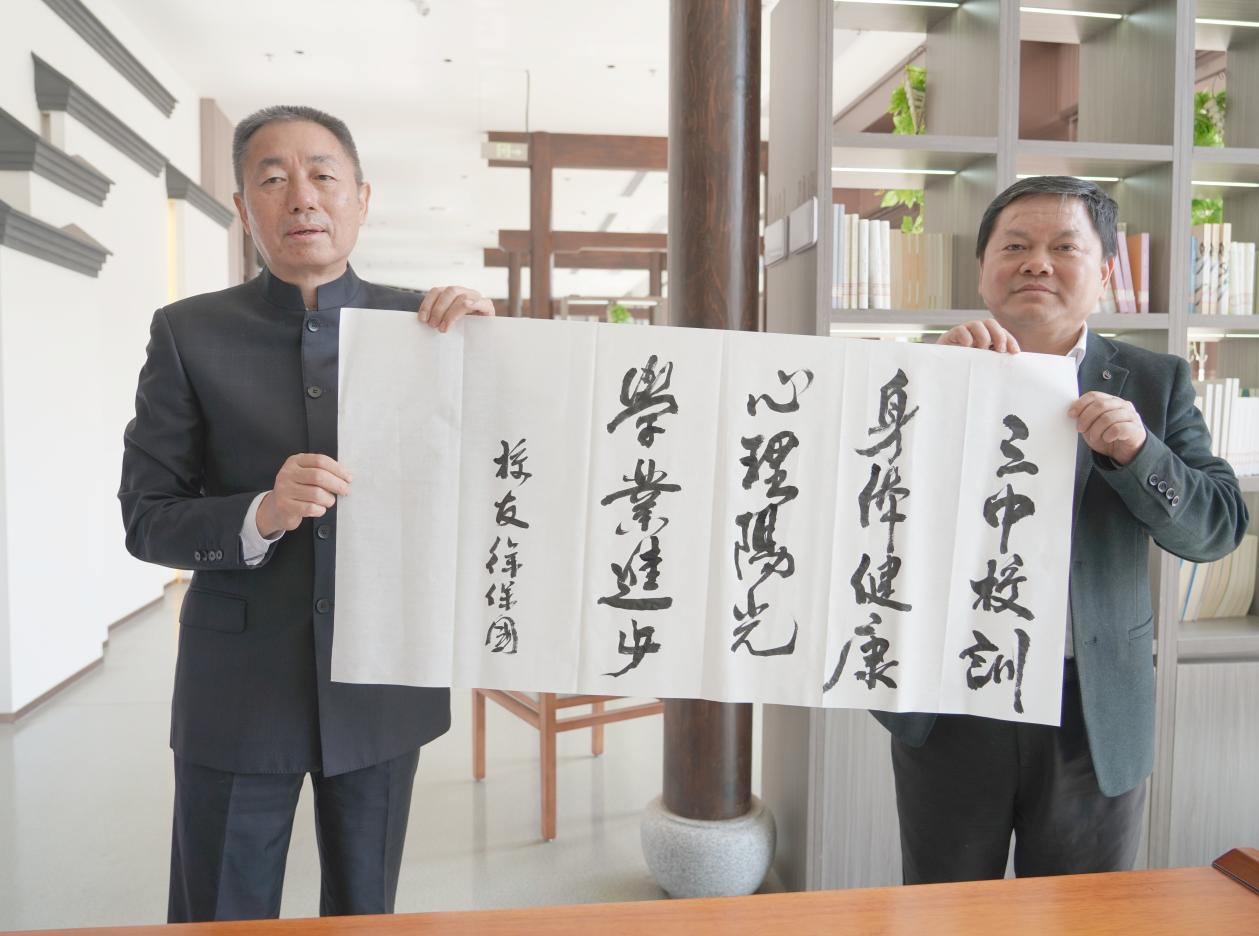 三中校訓
身体健康
心理陽光
學業進步
校友徐保國